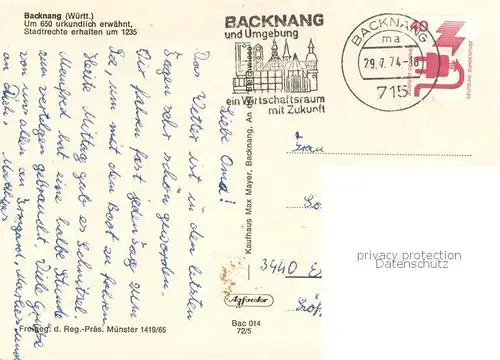 Backnang (Württ.)
Um 650 urkundlich erwähnt,
Stadtrechte erhalten um 1235
BACKNANG
und Umgebung
ein Wirtschaftsraum
mit Zukunft
BACKNANG
ma
29.7.74-18
715
40
DEUTSCHE BUNDESPOST
Liebe Oma!
Das Wetter ist in den letzten
Tagen sehr schön geworden.
Wir fahren fast jeden Tag zum
See, um mit dem Boot zu fahren.
Heute Mittag gab es Schnitzel.
Manfred hat eine halbe Stunde
zum verlegen gebraucht. Viele Grüße
von uns allen an Irmgard, Markus und
an Dich. Mathias
Kaufhaus Max Mayer, Backnang, An der
Frau
3440 E
Agfacolor
Bac 014
72/5
Freigeg. d. Reg.-Präs. Münster 1419/65
privacy protection
veralvoni GmbH